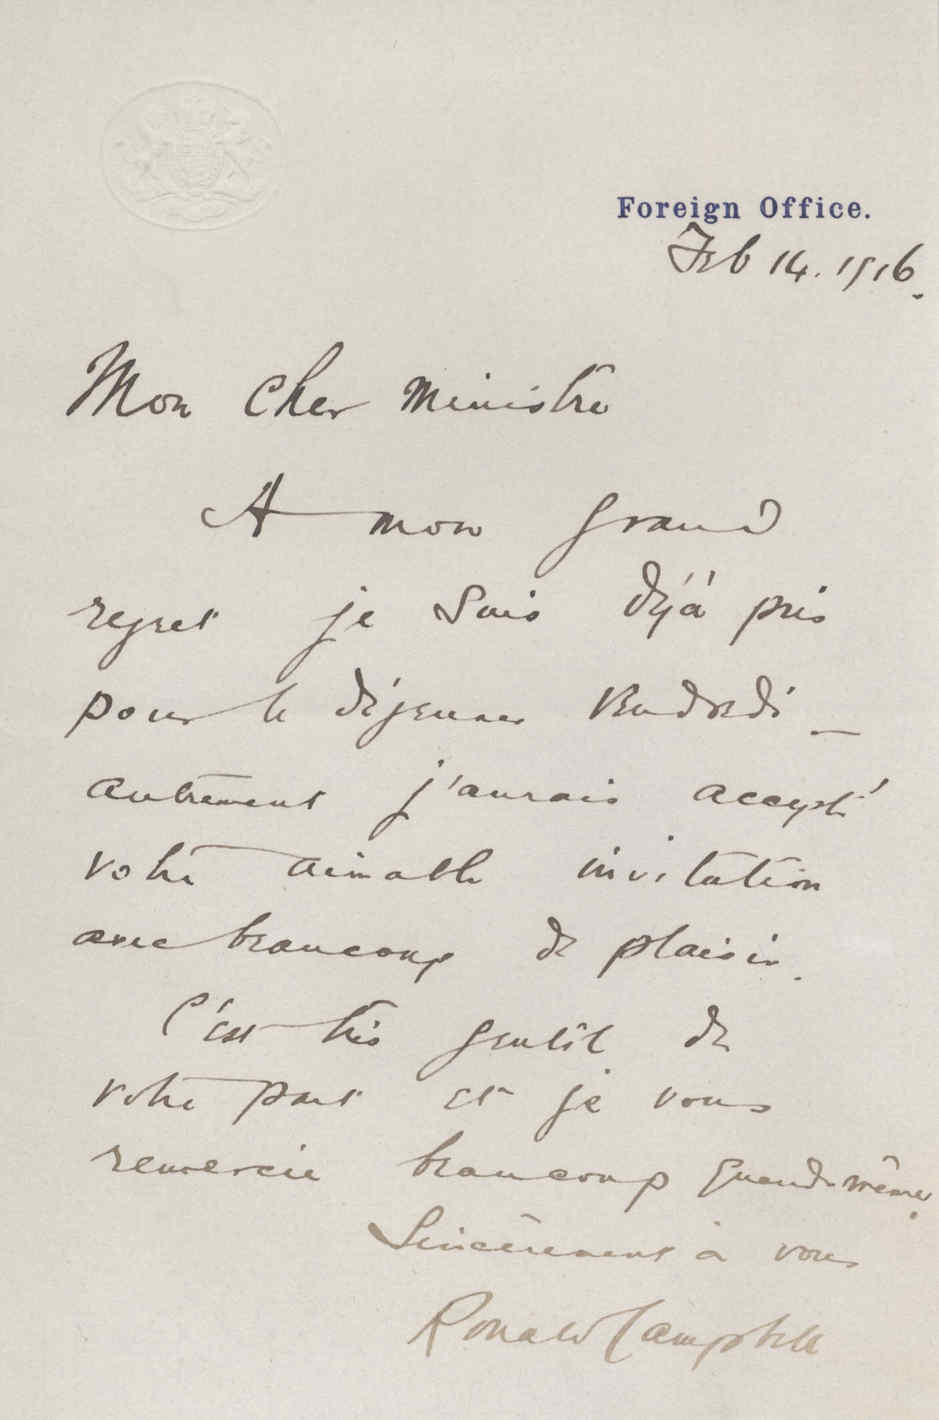 Foreign Office.
Feb 14. 1916.
Mon cher Ministre
A mon grand
regret je suis déjà pris
pour le déjeuner Vendredi —
autrement j'aurais accepté
votre aimable invitation
avec beaucoup de plaisir.
C'est très gentil de
votre part et je vous
remercie beaucoup quand-même.
Sincèrement à vous
Ronald Campbell